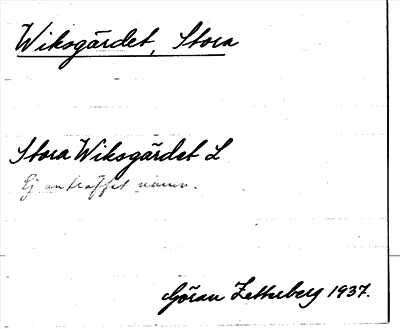 Wiksgärdet, Stora
Stora Wiksgärdet L
Ej anträffat namn.
Göran Zetterberg 1937.